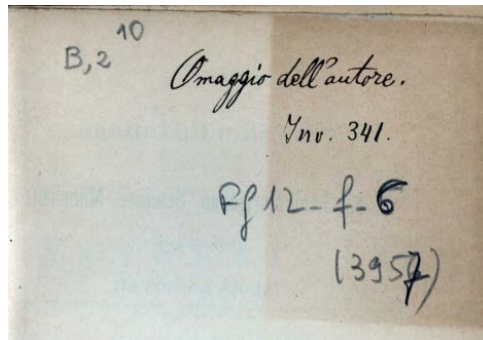 B,2 10
Omaggio dell'autore.
Inv. 341.
Fg 12-f-6
(3957)